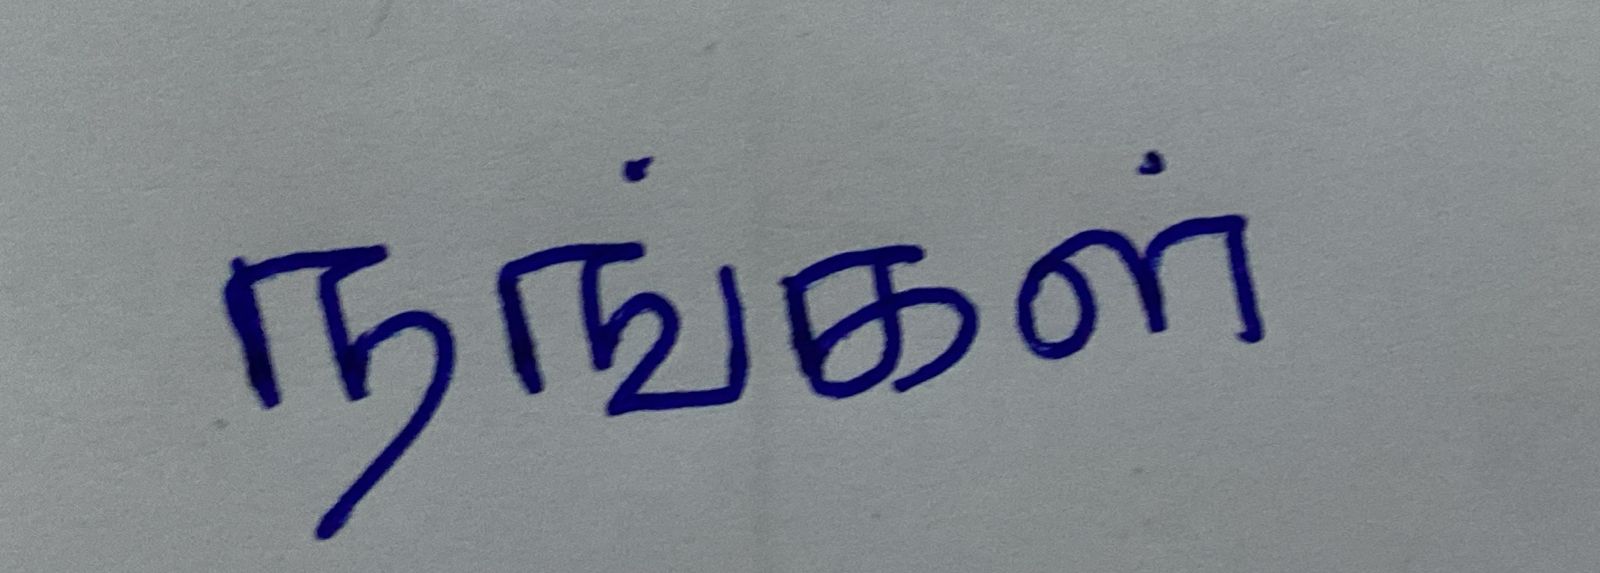 நங்கள்